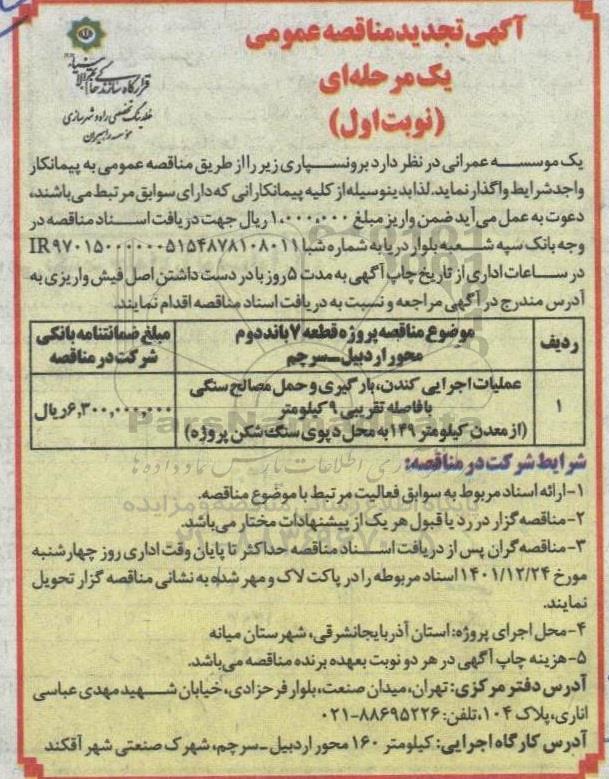 آگهی تجدید مناقصه عمومی
یک مرحله‌ای
(نوبت اول)
قرارگاه سازندگی خاتم الانبیاء
هلدینگ تخصصی راه و شهرسازی
موسسه راهیان
یک موسسه عمرانی در نظر دارد برونسپاری زیر را از طریق مناقصه عمومی به پیمانکار
واجد شرایط واگذار نماید. لذا بدینوسیله از کلیه پیمانکارانی که دارای سوابق مرتبط می‌باشند،
دعوت به عمل می‌آید ضمن واریز مبلغ ۱,۰۰۰,۰۰۰ ریال جهت دریافت اسناد مناقصه در
وجه بانک سپه شعبه بلوار دریا به شماره شبا IR۹۷۰۱۵۰۰۰۰۰۰۰۵۱۵۴۸۷۸۱۰۸۰۱۱
در ساعات اداری از تاریخ چاپ آگهی به مدت ۵ روز با در دست داشتن اصل فیش واریزی به
آدرس مندرج در آگهی مراجعه و نسبت به دریافت اسناد مناقصه اقدام نمایند.
ردیف موضوع مناقصه پروژه قطعه ۷ باند دوم مبلغ ضمانتنامه بانکی
محور اردبیل_سرچم شرکت در مناقصه
عملیات اجرایی کندن، بارگیری و حمل مصالح سنگی
۱ با فاصله تقریبی ۹ کیلومتر ۶,۳۰۰,۰۰۰,۰۰۰ ریال
(از معدن کیلومتر ۱۴۹ به محل دپوی سنگ شکن پروژه)
شرایط شرکت در مناقصه:
۱-ارائه اسناد مربوط به سوابق فعالیت مرتبط با موضوع مناقصه.
۲-مناقصه‌گزار در رد یا قبول هر یک از پیشنهادات مختار می‌باشد.
۳-مناقصه‌گران پس از دریافت اسناد مناقصه حداکثر تا پایان وقت اداری روز چهارشنبه
مورخ ۱۴۰۱/۱۲/۲۴ اسناد مربوطه را در پاکت لاک و مهر شده به نشانی مناقصه گزار تحویل
نمایند.
۴-محل اجرای پروژه: استان آذربایجانشرقی، شهرستان میانه
۵-هزینه چاپ آگهی در هر دو نوبت بعهده برنده مناقصه می‌باشد.
آدرس دفتر مرکزی: تهران، میدان صنعت، بلوار فرحزادی، خیابان شهید مهدی عباسی
اناری، پلاک ۱۰۴، تلفن: ۸۸۶۹۵۲۲۶-۰۲۱
آدرس کارگاه اجرایی: کیلومتر ۱۶۰ محور اردبیل_سرچم، شهرک صنعتی شهر آقکند